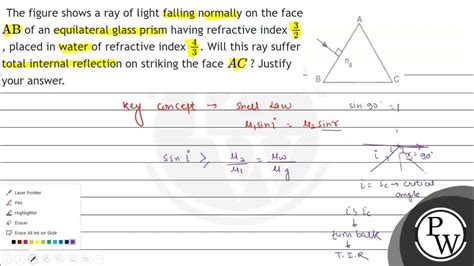 The figure shows a ray of light falling normally on the face
AB of an equilateral glass prism having refractive index 3/2
, placed in water of refractive index 4/3. Will this ray suffer
total internal reflection on striking the face AC ? Justify
your answer.
A
n_g
B
C
Key concept → Snell Law
μ₁sini = μ₂sinr
sin i ≥ μ₂/μ₁ = μw/μg
sin 90° = 1
i
r = 90°
i = ic → critical
angle
i > ic
↓
turn back
↓
T. I. R
Laser Pointer
Pen
Highlighter
Eraser
Erase All Ink on Slide
P
W